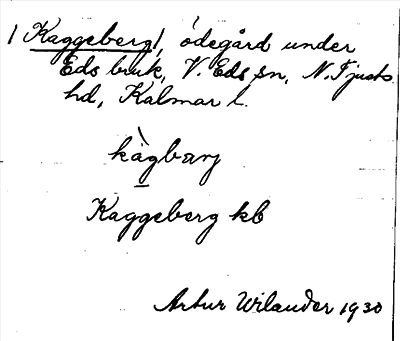 / Kaggeberg /, ödegård under
Eds bruk, V. Eds sn, N. Tjusts
hd, Kalmar l.
kàgbarj
Kaggeberg kb
Artur Wilander 1930